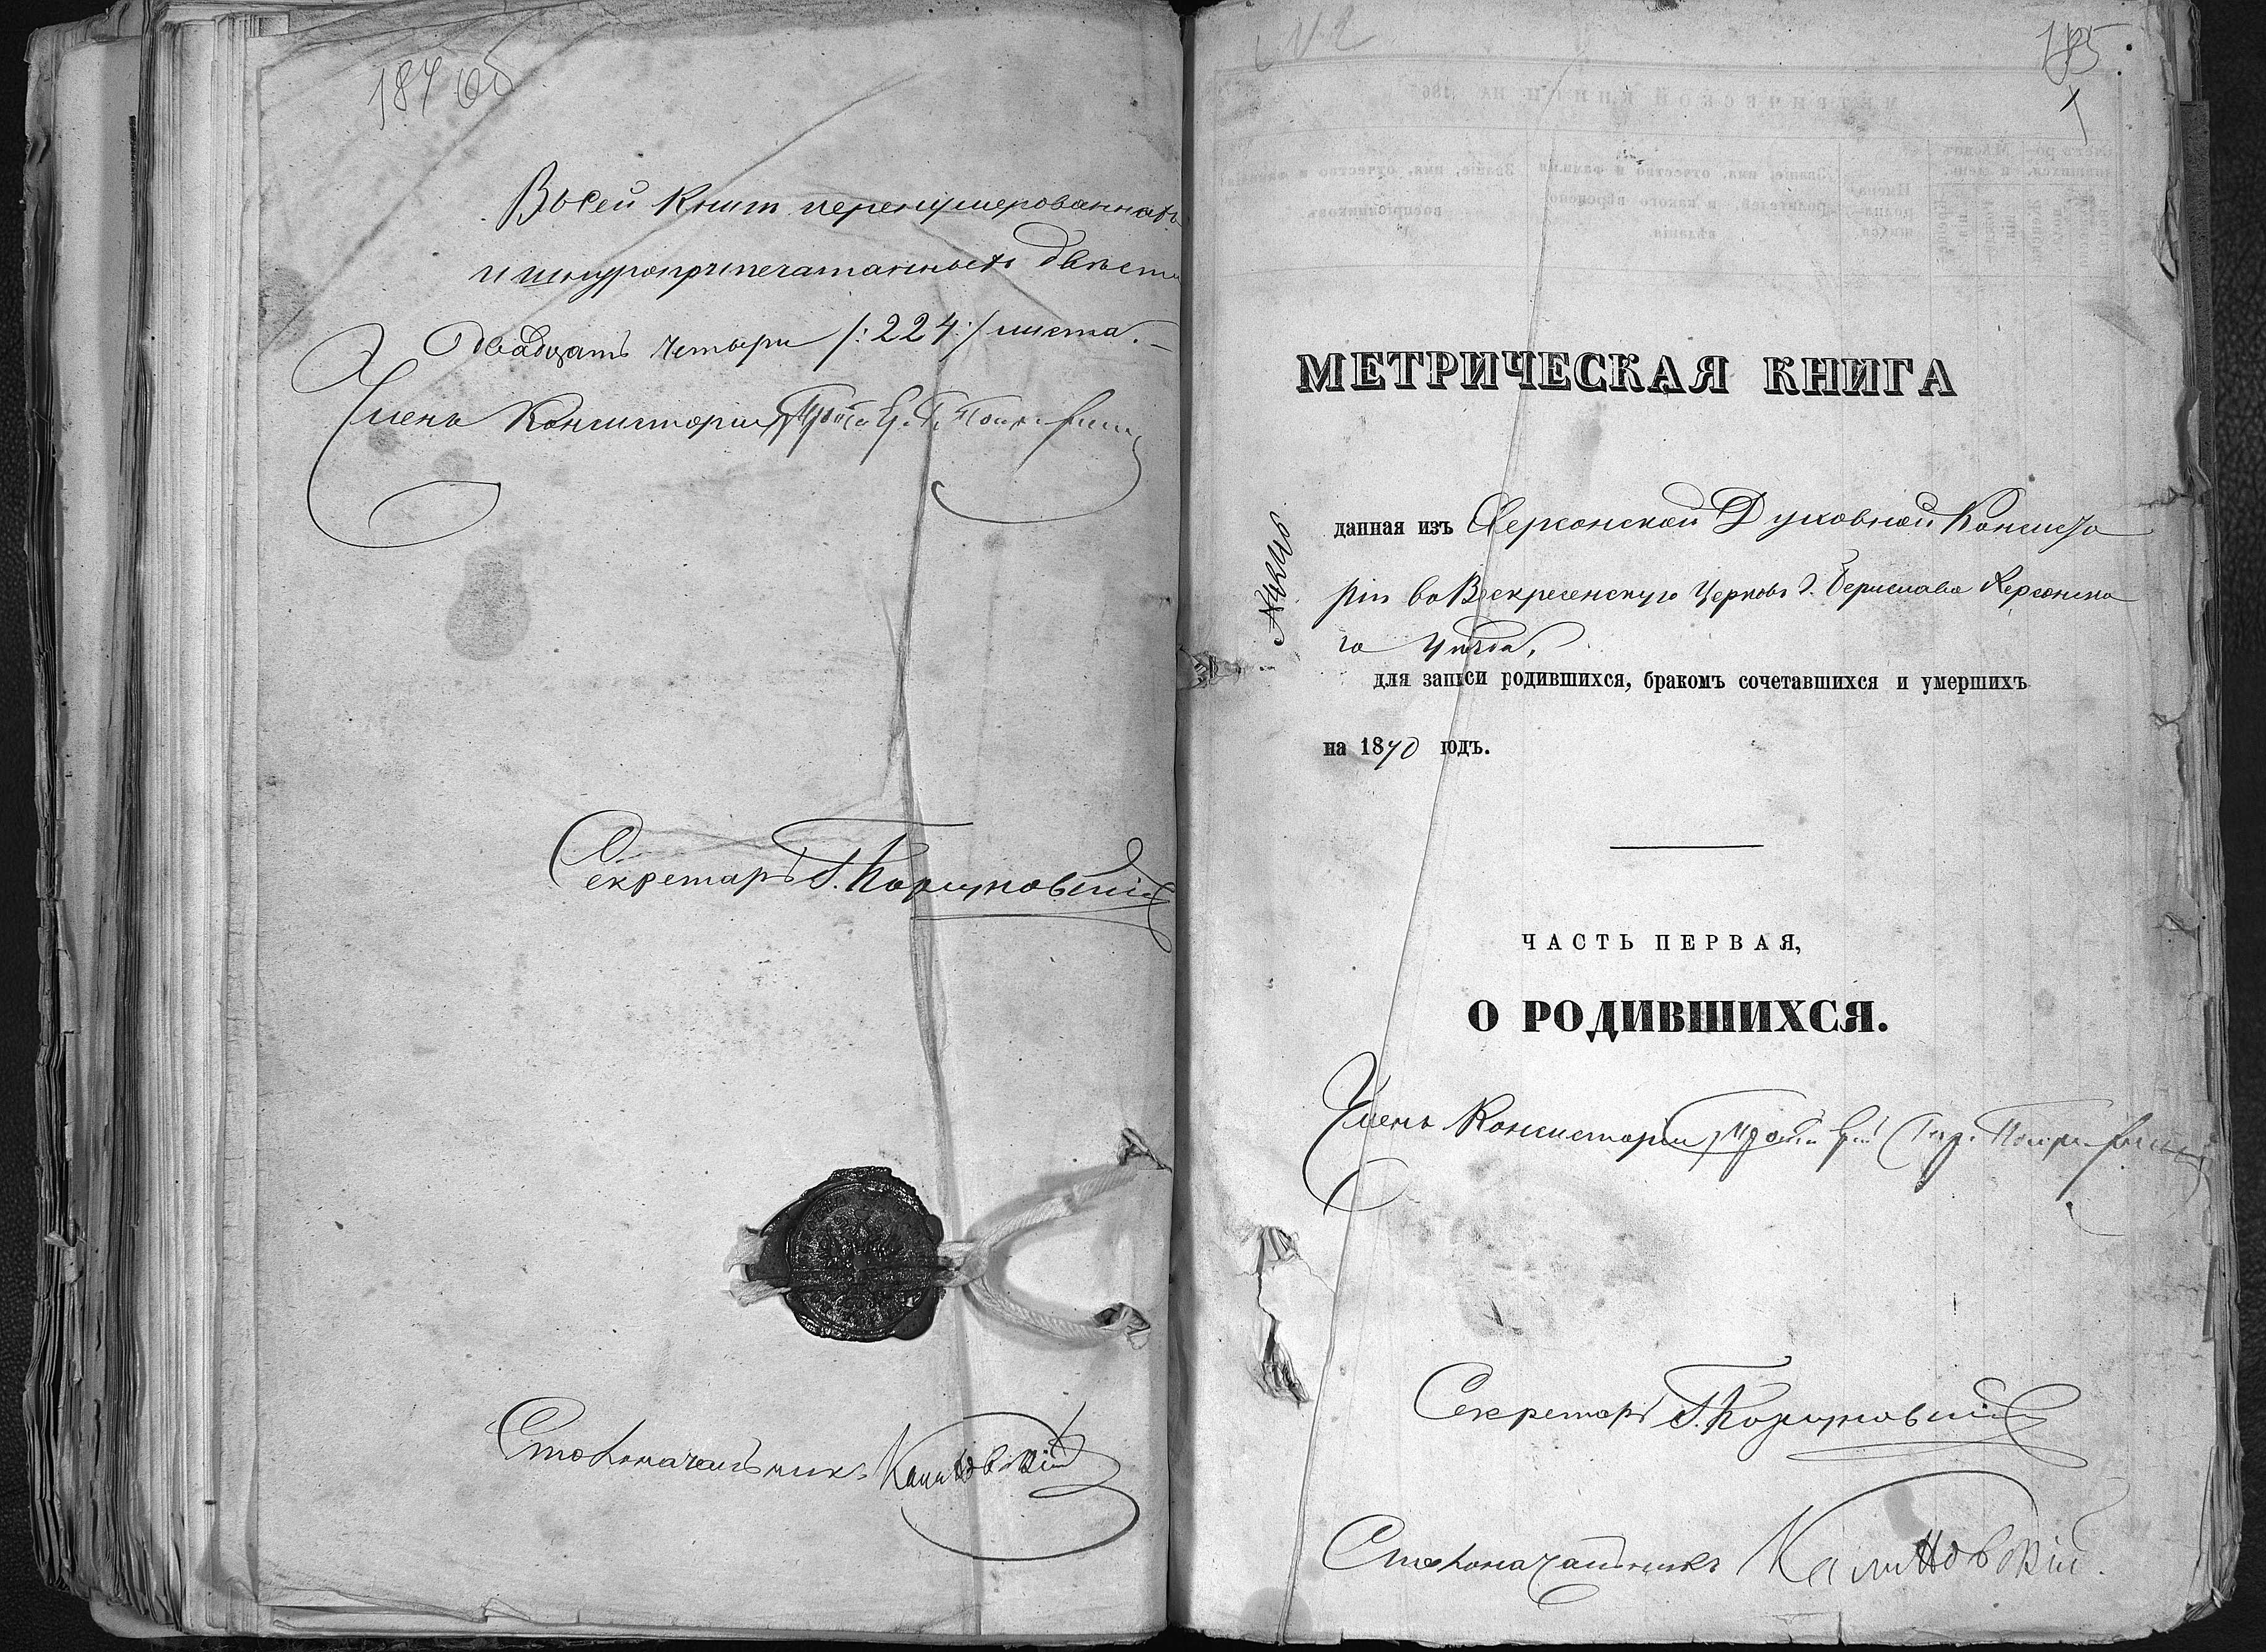 187 об
Въ сей книги перенумерованныхъ
и шнуроприпечатанныхъ двѣсти
двадцать четыри /:224:/ листа.
Членъ Консисторіи
Секретарь
Столоначальникъ Калиновскій
№ 2
185
1
МЕТРИЧЕСКАЯ КНИГА
данная изъ Херсонской Духовной Консисто
ріи во Воскресенскую Церковь г. Берислава Херсонска
го уѣзда,
для записи родившихся, бракомъ сочетавшихся и умершихъ
на 1870 годъ.
ЧАСТЬ ПЕРВАЯ,
О РОДИВШИХСЯ.
Членъ Консисторіи
Секретарь
Столоначальникъ Калиновскій